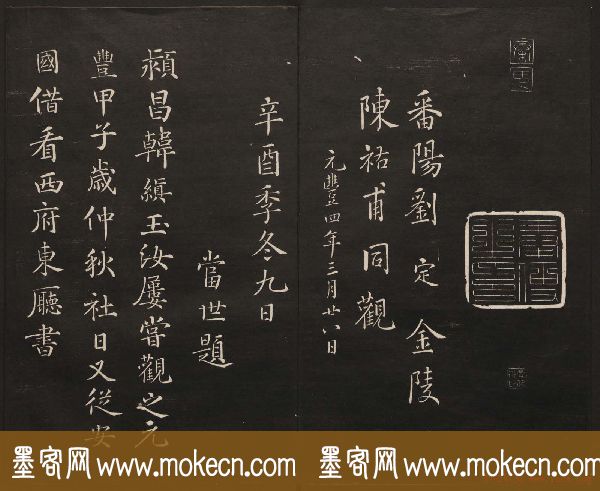 番陽劉定金陵
陳祐甫同觀
元豐四年三月廿八日
辛酉季冬九日
當世題
潁昌韓縝玉汝屢嘗觀之元
豐甲子歲仲秋社日又從安
國借看西府東廳書
墨客网 www.mokecn.com 墨客网 www.mokecn.com